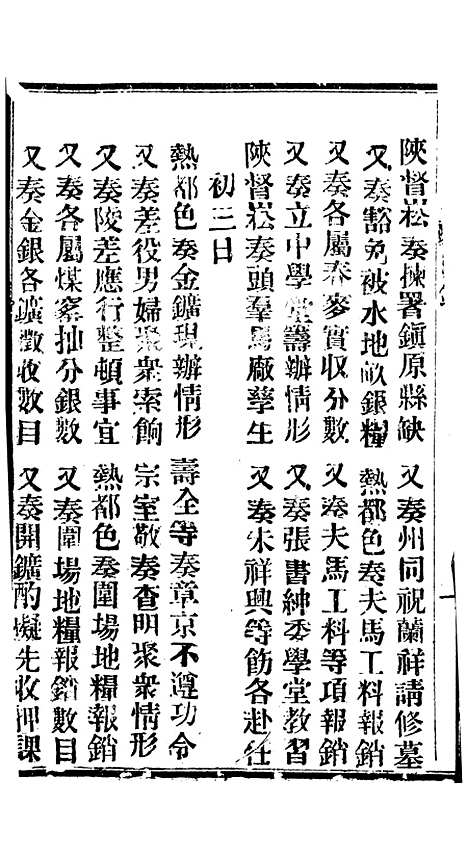 陝督崧奏揀署鎭原縣缺　又奏州同祝蘭祥請修墓
又奏豁免被水地畝銀糧　熱都色奏夫馬工料報銷
又奏各屬春麥實収分數　又奏夫馬工料等項報銷
又奏立中學堂籌辦情形　又奏張書紳委學堂教習
陝督崧奏頭羣馬廠孳生　又奏朱祥興等飭各赴任
初三日
熱都色奏金鑛現辦情形　壽全等奏章京不遵功令
又奏差役男婦聚衆索餉　宗室敬奏查明聚衆情形
又奏陵差應行整頓事宜　熱都色奏圍場地糧報銷
又奏各屬煤窰抽分銀數　又奏圍場地糧報銷數目
又奏金銀各鑛徵收數目　又奏開鑛酌擬先收押課